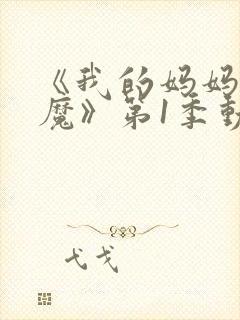 《我的妈妈
魔》第1季動
弋戈